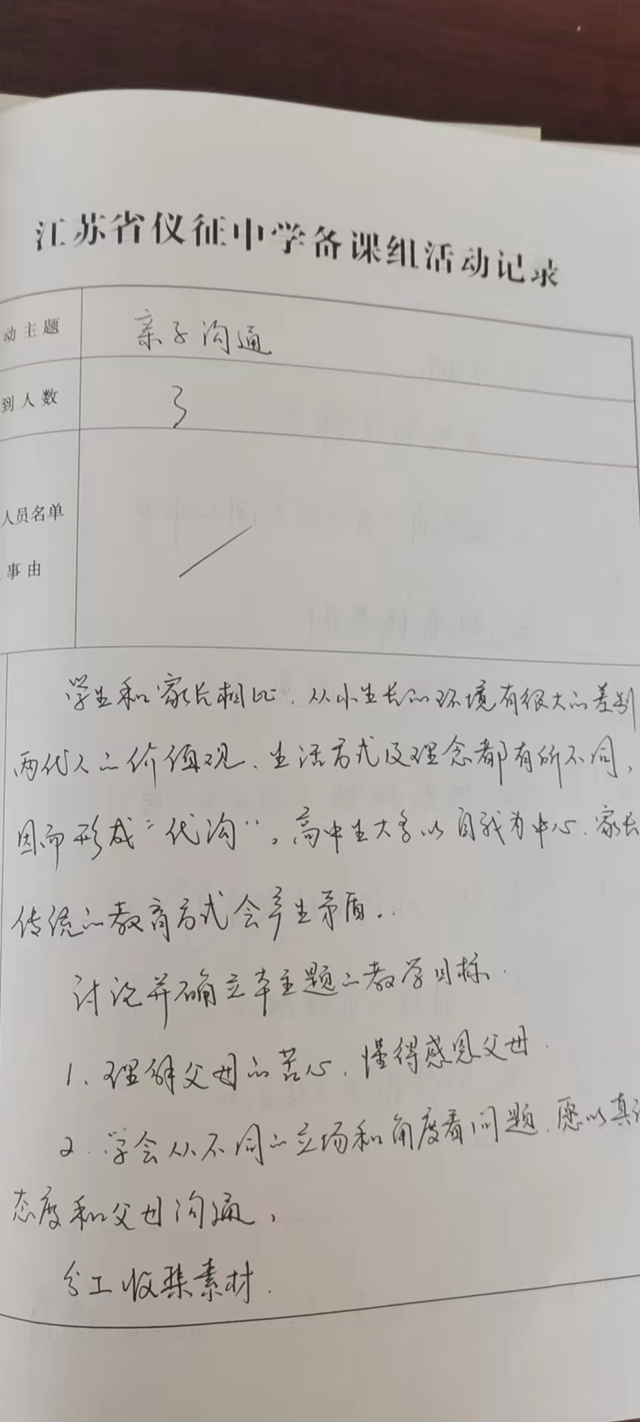 江苏省仪征中学备课组活动记录
动主题 亲子沟通
到人数 3
人员名单
事由
学生和家长相比、从小生长的环境有很大的差别
两代人的价值观、生活方式及理念都有所不同,
因而形成“代沟”。高中生大多以自我为中心、家长
传统的教育方式会产生矛盾。
讨论并确立本主题的教学目标.
1、理解父母的苦心、懂得感恩父母.
2. 学会从不同的立场和角度看问题、愿以真
态度和父母沟通,
分工收集素材.